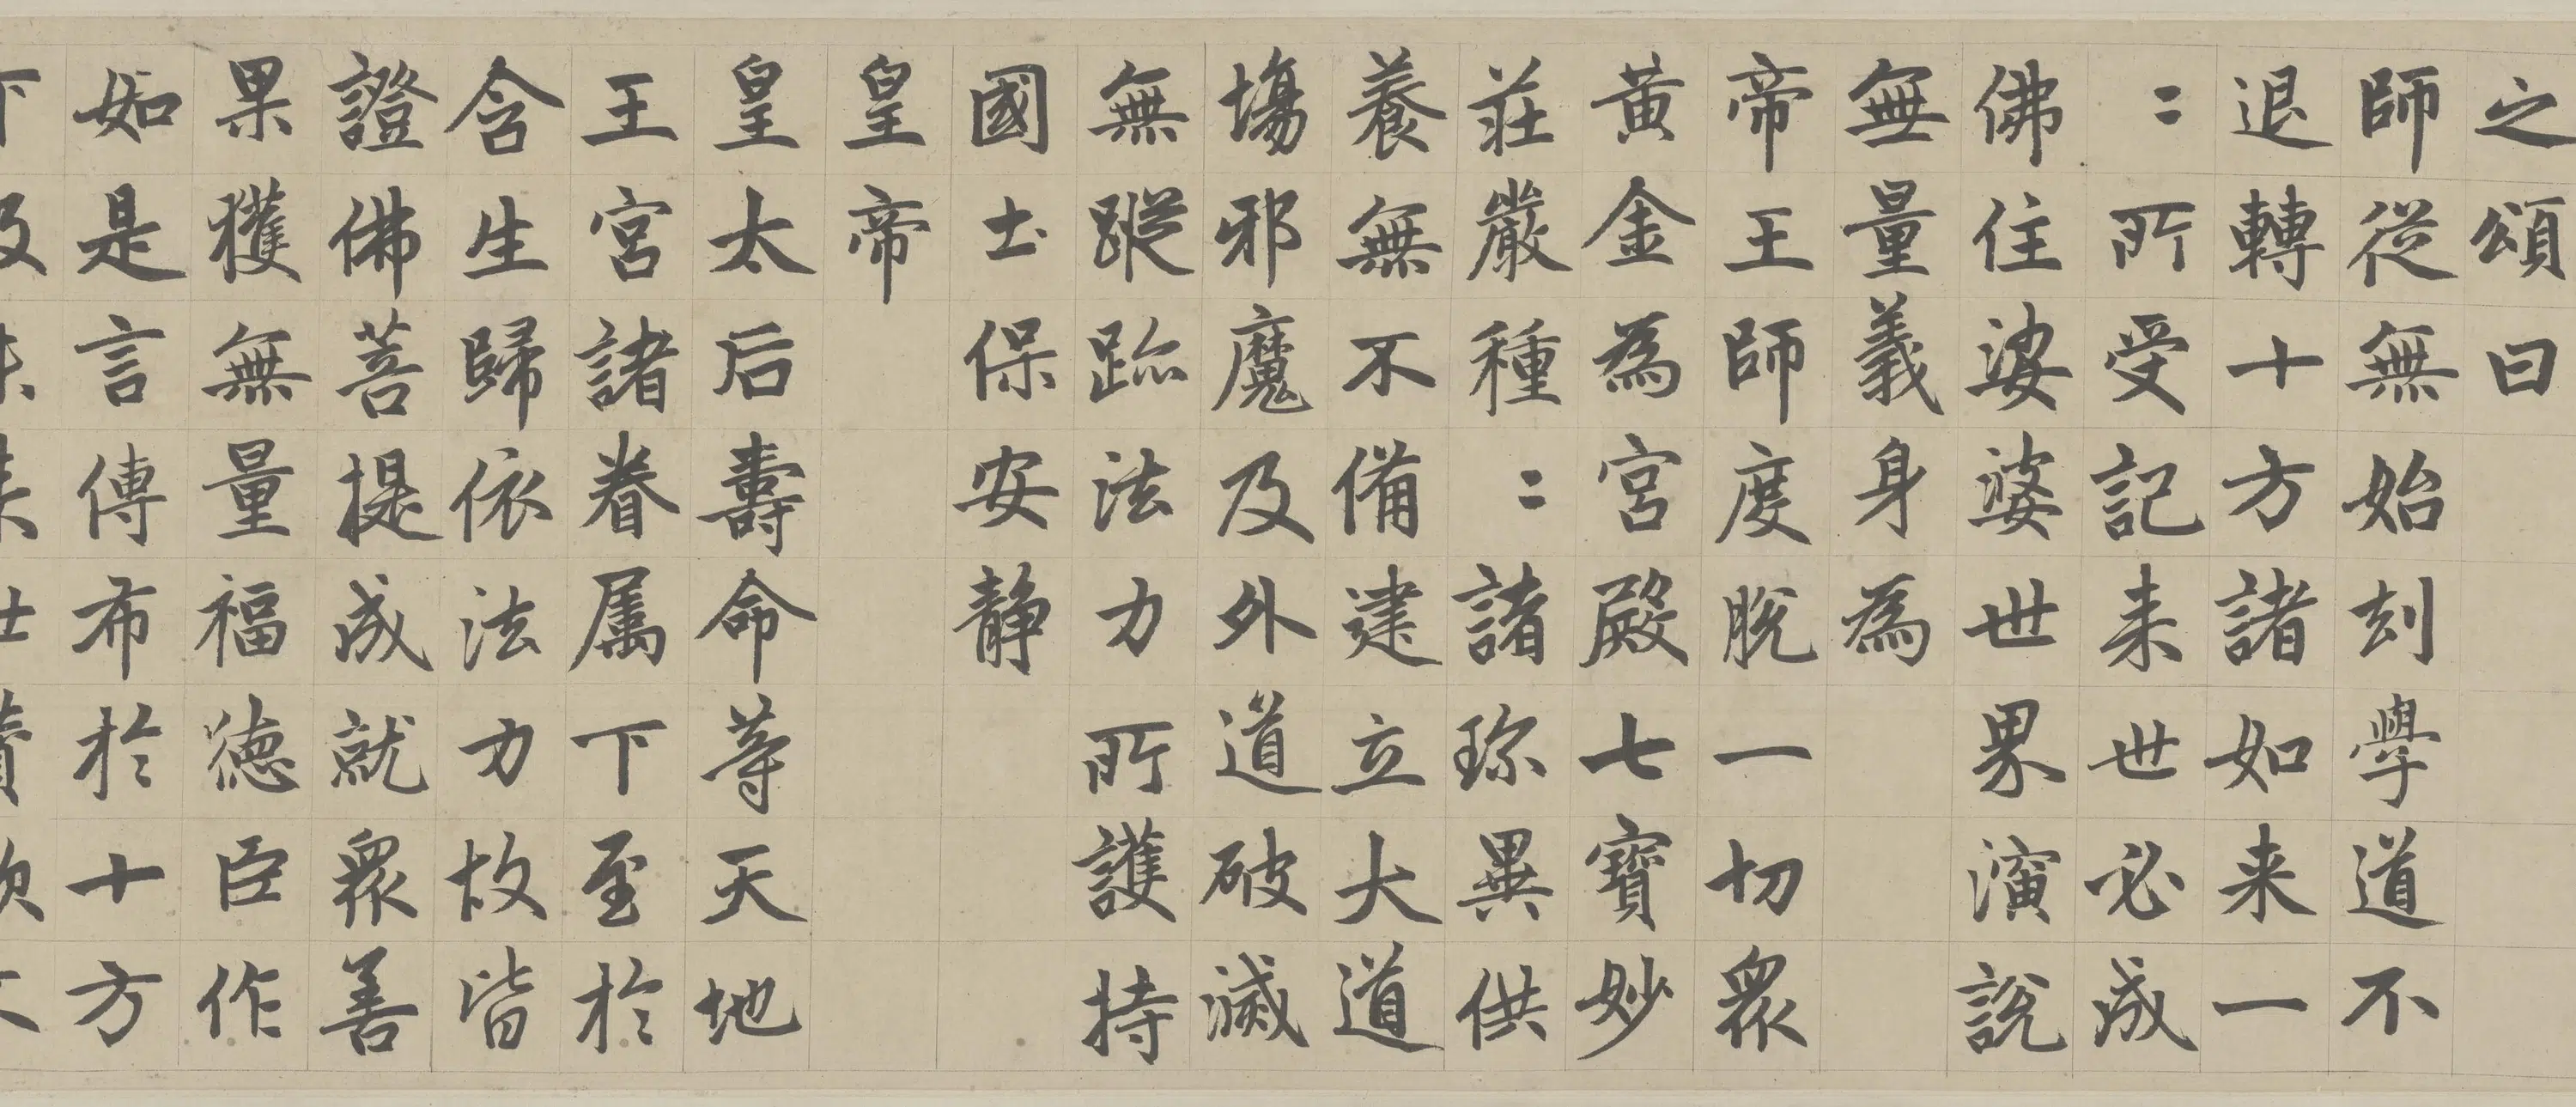 之頌曰
師從無始刼學道不
退轉十方諸如来一
〻所受記来世必成
佛住娑婆世界演說
無量義身為
帝王師度脫一切衆
黃金為宮殿七寶妙
莊嚴種〻諸珎異供
養無不備建立大道
場邪魔及外道破滅
無蹤跡法力所護持
國土保安静
皇帝
皇太后壽命等天地
王宮諸眷属下至於
含生歸依法力故皆
證佛菩提成就衆善
果獲無量福德臣作
如是言傳布於十方
下及